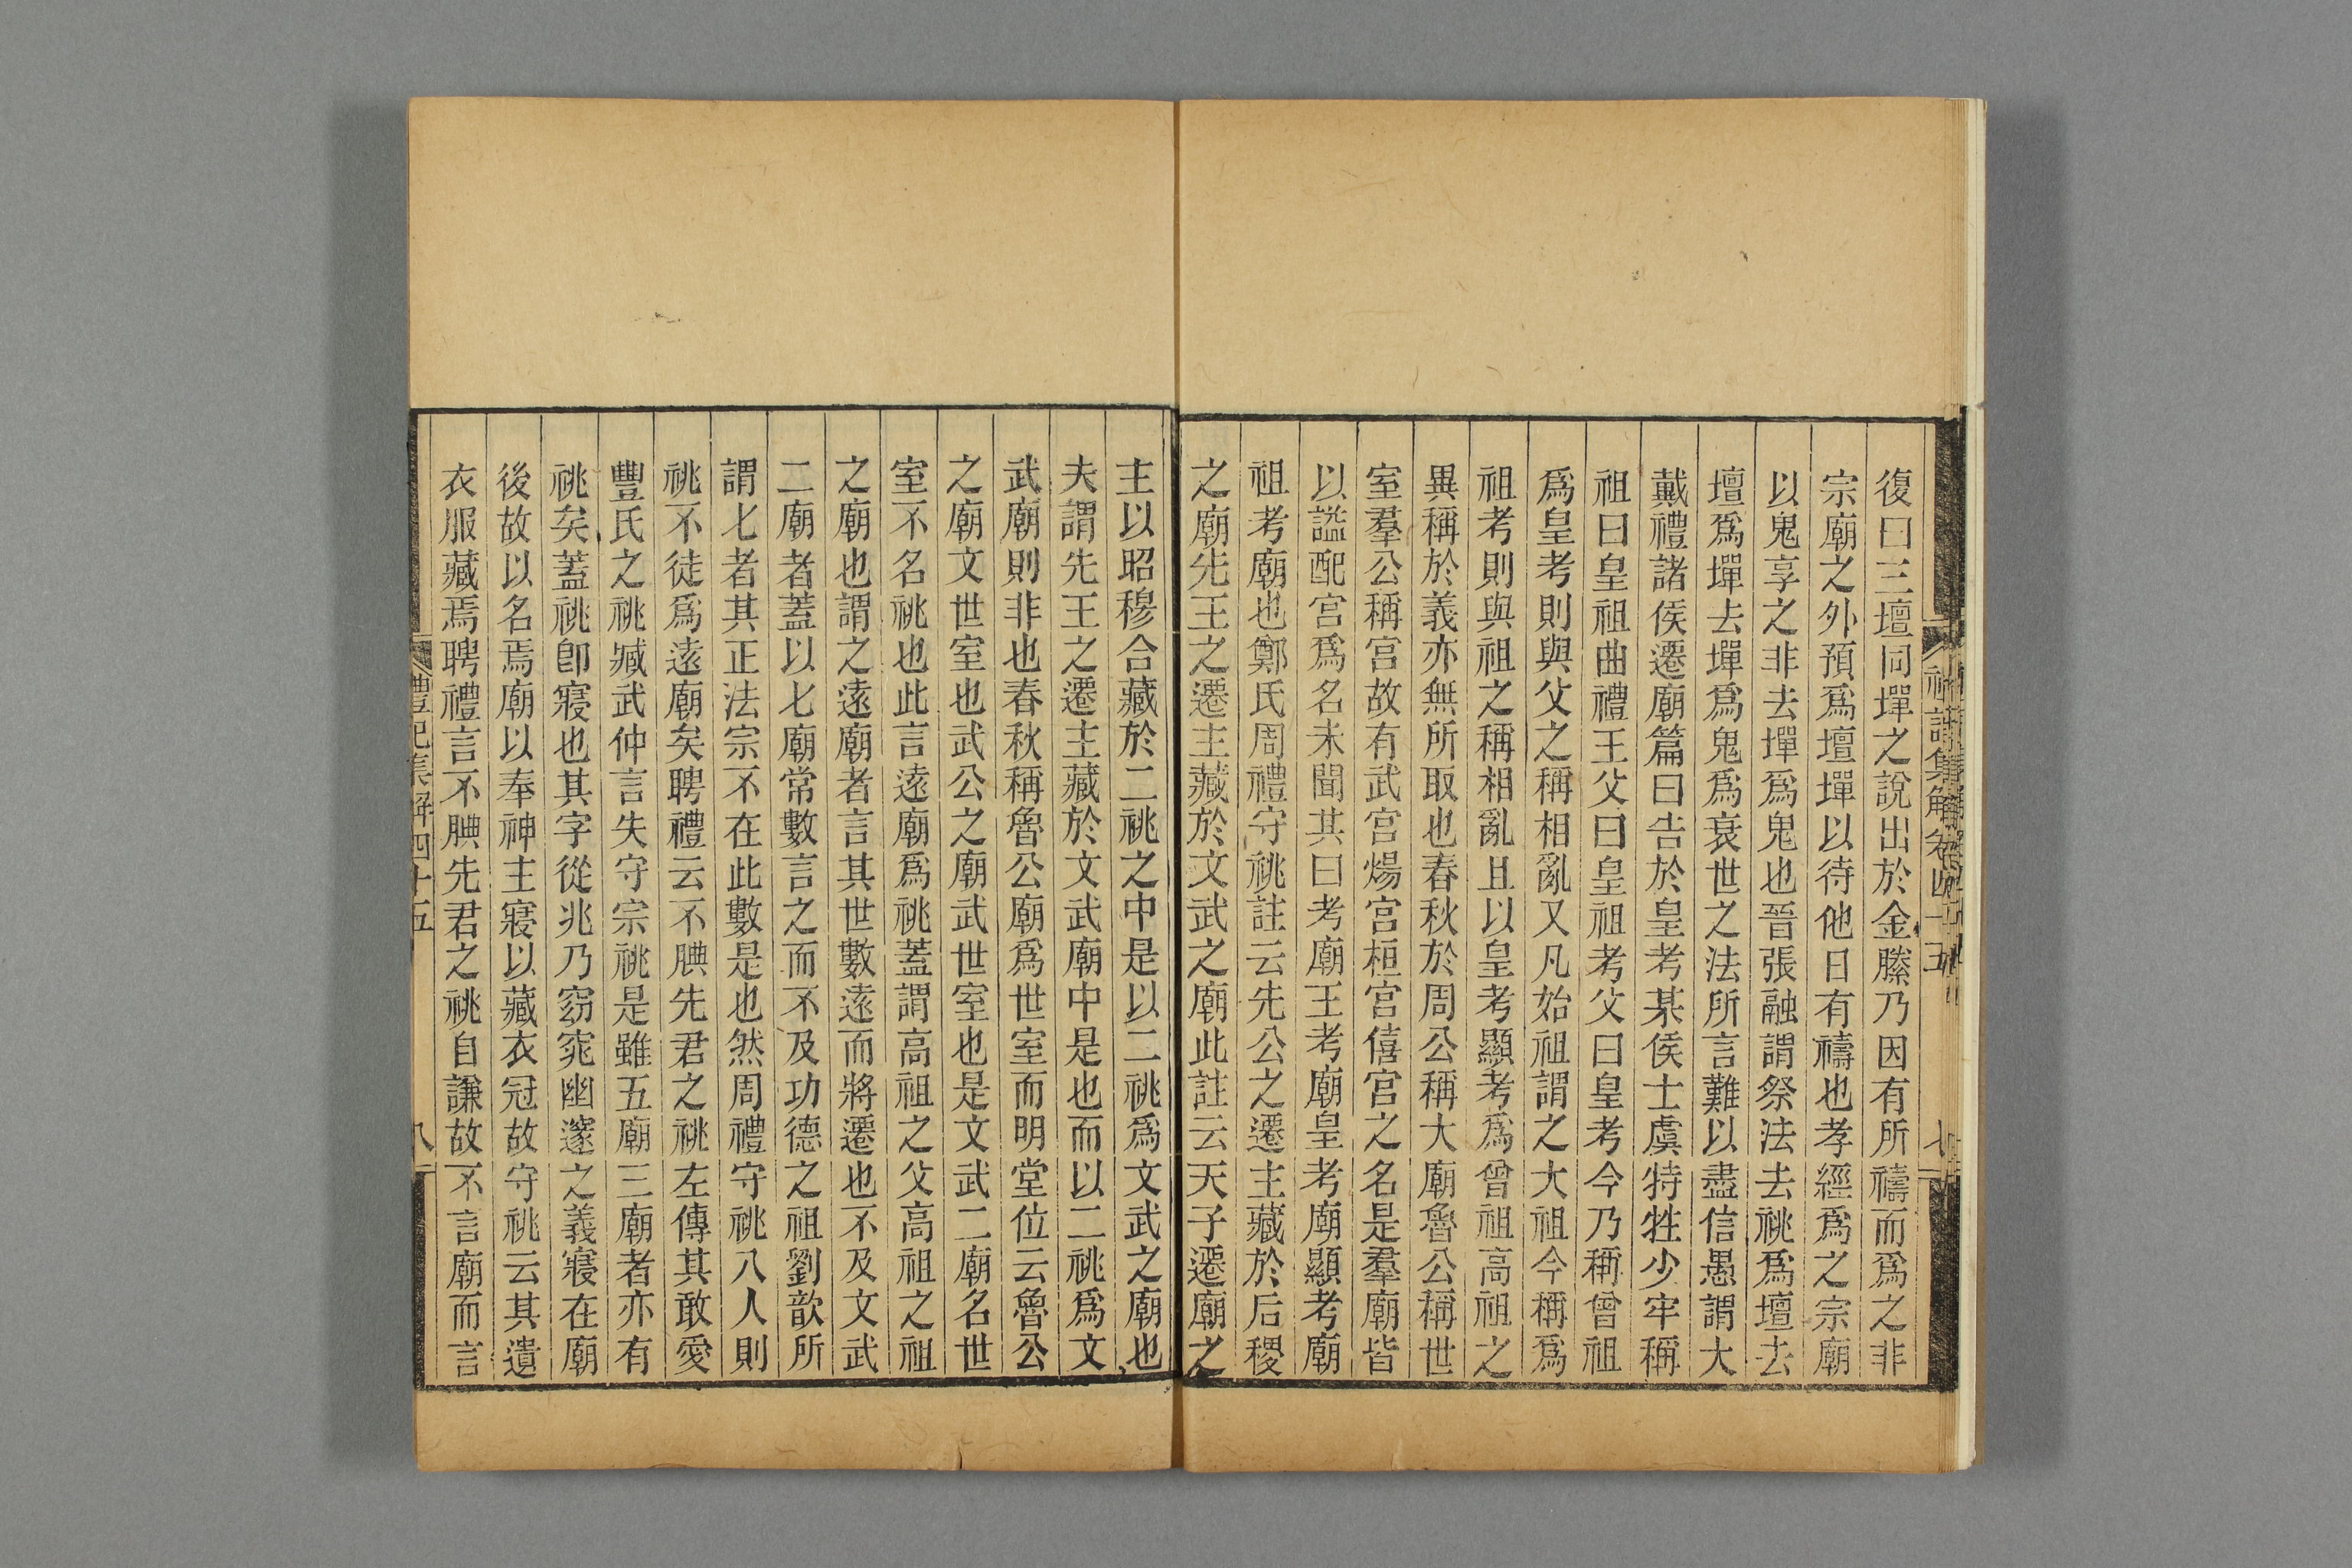 復曰三壇同墠之說出於金縢乃因有所禱而爲之非
宗廟之外預爲壇墠以待他日有禱也孝經爲之宗廟
以鬼享之非去墠爲鬼也晉張融謂祭法去祧爲壇去
壇爲墠去墠爲鬼爲衰世之法所言難以盡信愚謂大
戴禮諸侯遷廟篇曰告於皇考某侯士虞特牲少牢稱
祖曰皇祖曲禮王父曰皇祖考父曰皇考今乃稱曾祖
爲皇考則與父之稱相亂又凡始祖謂之大祖今稱爲
祖考則與祖之稱相亂且以皇考顯考爲曾祖高祖之
異稱於義亦無所取也春秋於周公稱大廟魯公稱世
室羣公稱宫故有武宫煬宫桓宫僖宫之名是羣廟皆
以謚配宫爲名未聞其曰考廟王考廟皇考廟顯考廟
祖考廟也鄭氏周禮守祧註云先公之遷主藏於后稷
之廟先王之遷主藏於文武之廟此註云天子遷廟之
主以昭穆合藏於二祧之中是以二祧爲文武之廟也
夫謂先王之遷主藏於文武廟中是也而以二祧爲文
武廟則非也春秋稱魯公廟爲世室而明堂位云魯公
之廟文世室也武公之廟武世室也是文武二廟名世
室不名祧也此言遠廟爲祧蓋謂高祖之父高祖之祖
之廟也謂之遠廟者言其世數遠而將遷也不及文武
二廟者蓋以七廟常數言之而不及功德之祖劉歆所
謂七者其正法宗不在此數是也然周禮守祧八人則
祧不徒爲遠廟矣聘禮云不腆先君之祧左傳其敢愛
豐氏之祧臧武仲言失守宗祧是雖五廟三廟者亦有
祧矣蓋祧卽寢也其字從兆乃窈窕幽邃之義寢在廟
後故以名焉廟以奉神主寢以藏衣冠故守祧云其遺
衣服藏焉聘禮言不腆先君之祧自謙故不言廟而言
禮記集解四十五
八